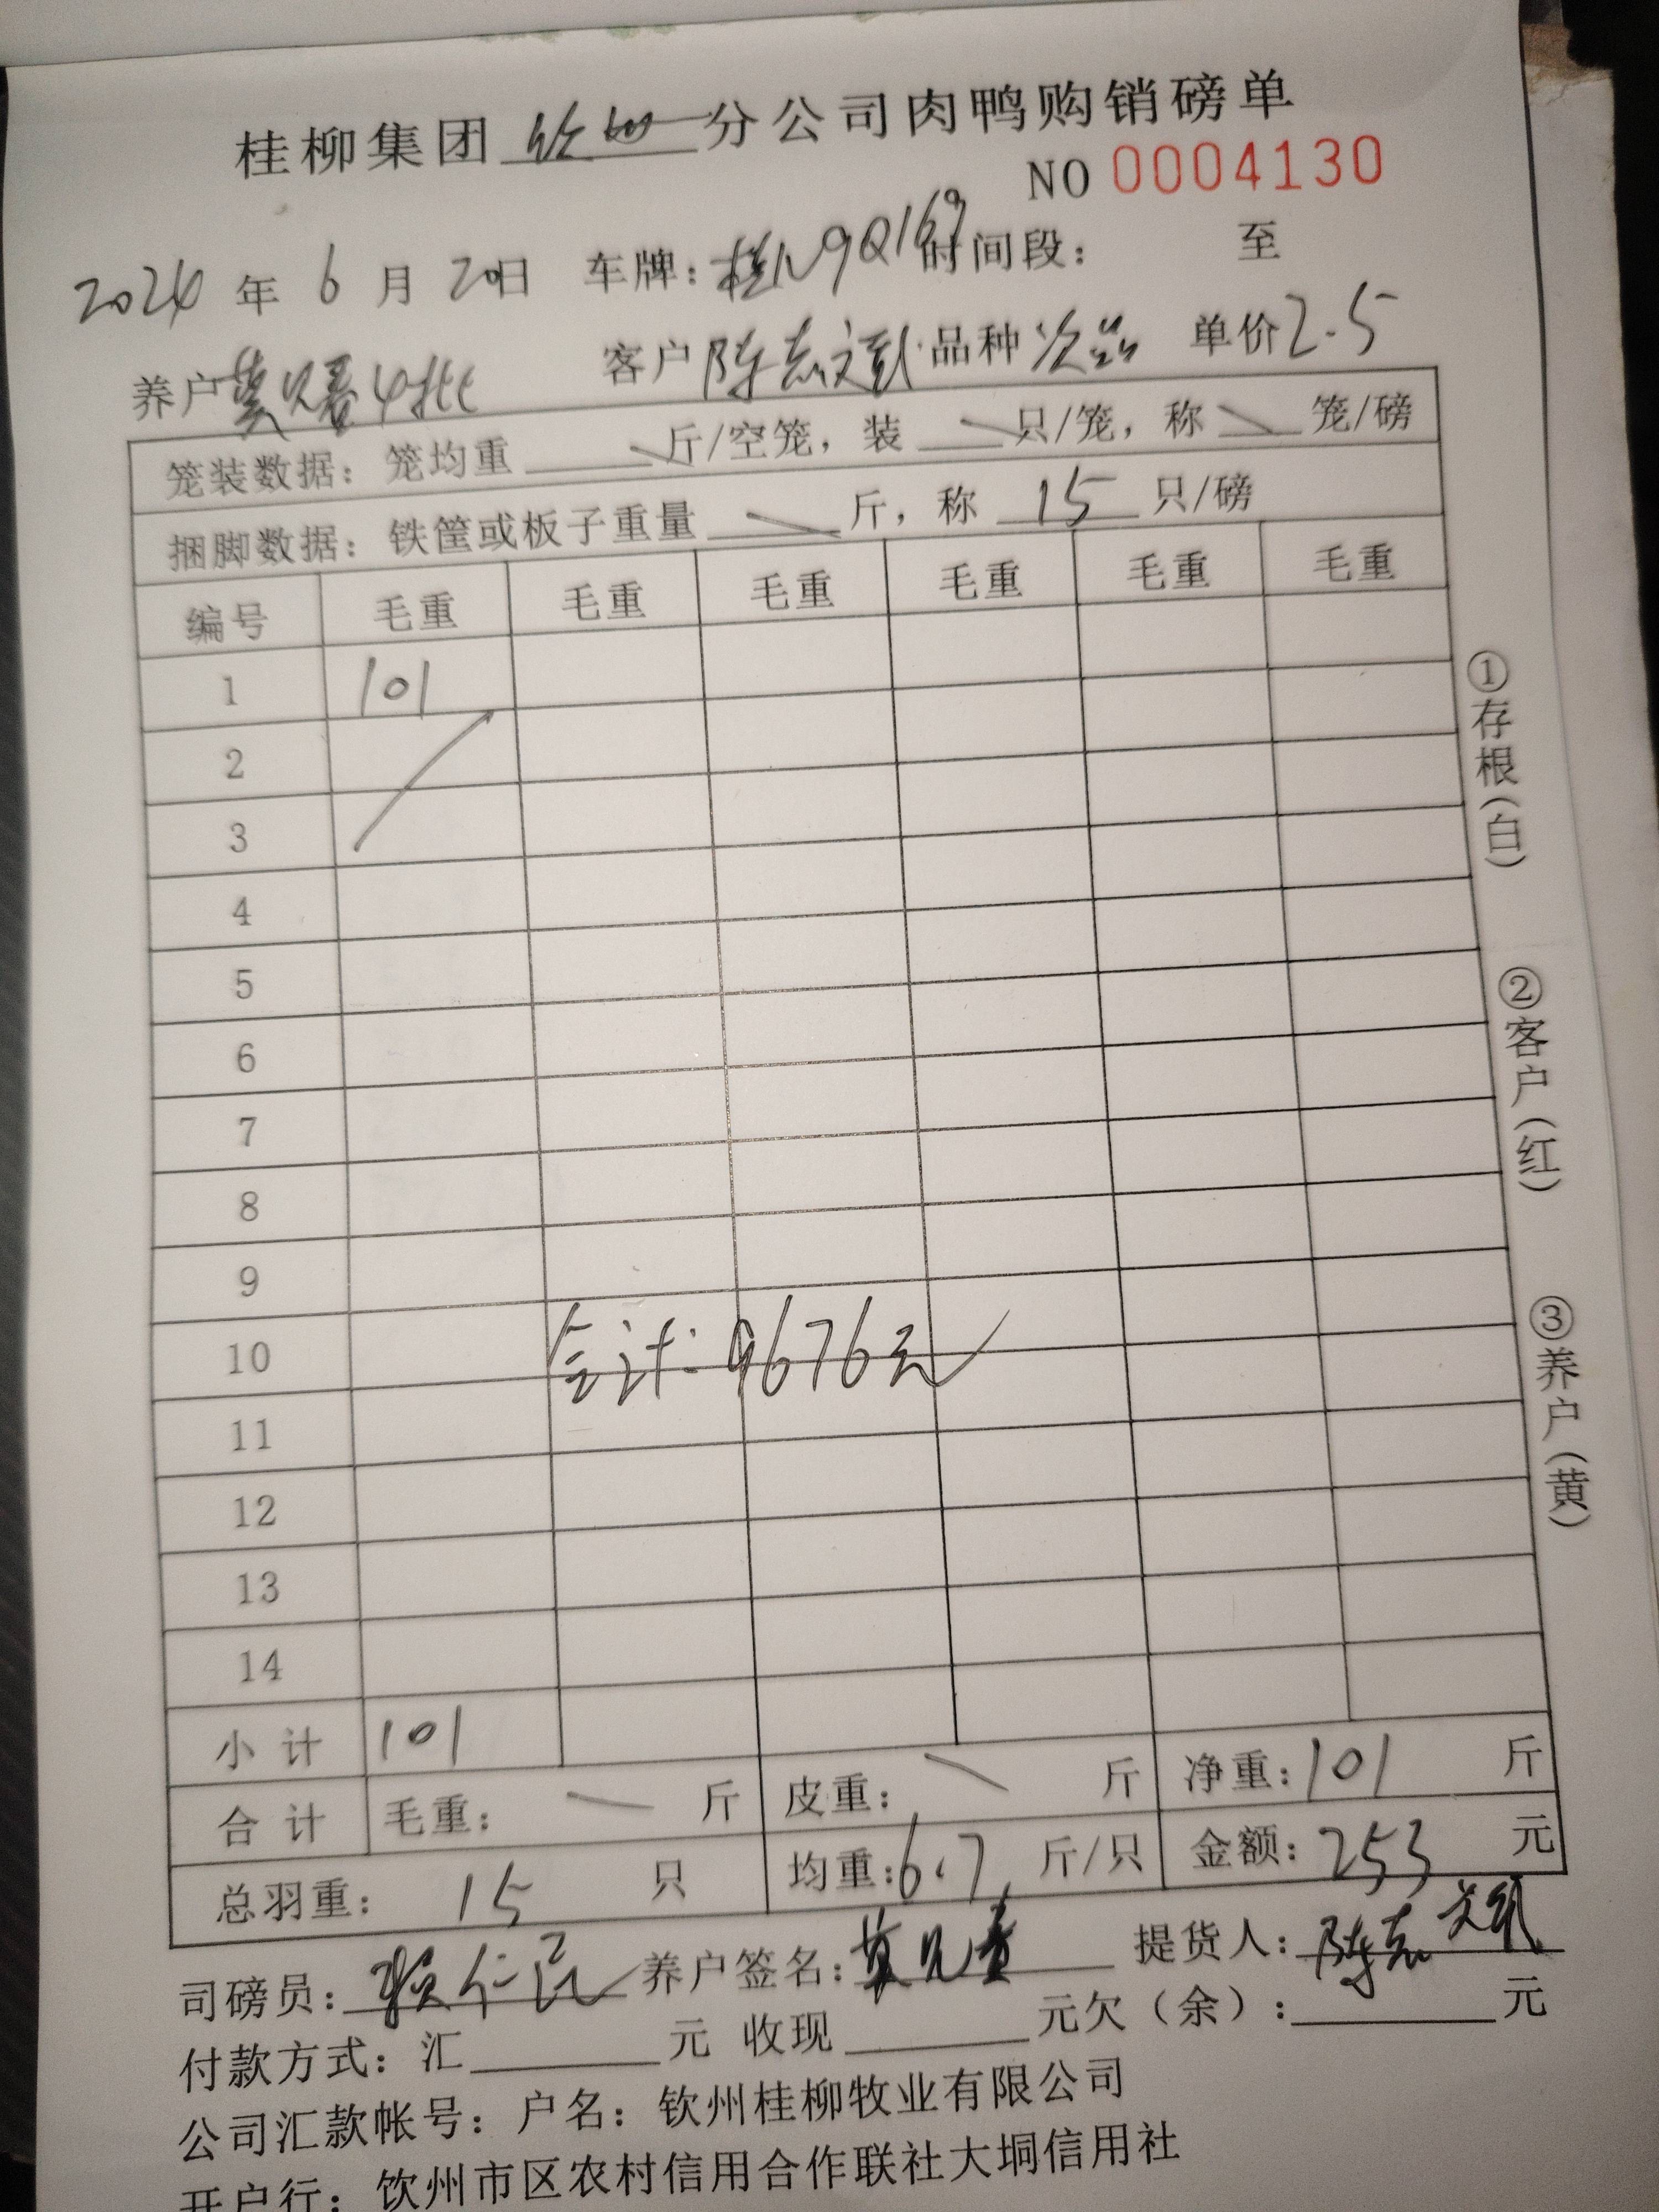 桂柳集团 钦州 分公司肉鸭购销磅单
NO 0004130
2024 年 6 月 20日 车牌：桂N9Q169 时间段： 至
养户 4批 客户 陈志文 品种 次品 单价 2.5
笼装数据：笼均重 斤/空笼，装 只/笼，称 笼/磅
捆脚数据：铁筐或板子重量 斤，称 15 只/磅
编号 毛重 毛重 毛重 毛重 毛重 毛重
1 101
2
3
4
5
6
7
8
9
10 合计：9676元
11
12
13
14
小计 101
合计 毛重： 斤 皮重： 斤 净重：101 斤
总羽重： 15 只 均重：6.7 斤/只 金额：253 元
司磅员：赖仁民 养户签名： 提货人：陈志文
付款方式：汇 元 收现 元欠（余）： 元
公司汇款帐号：户名：钦州桂柳牧业有限公司
开户行：钦州市区农村信用合作联社大垌信用社
①存根（白）
②客户（红）
③养户（黄）